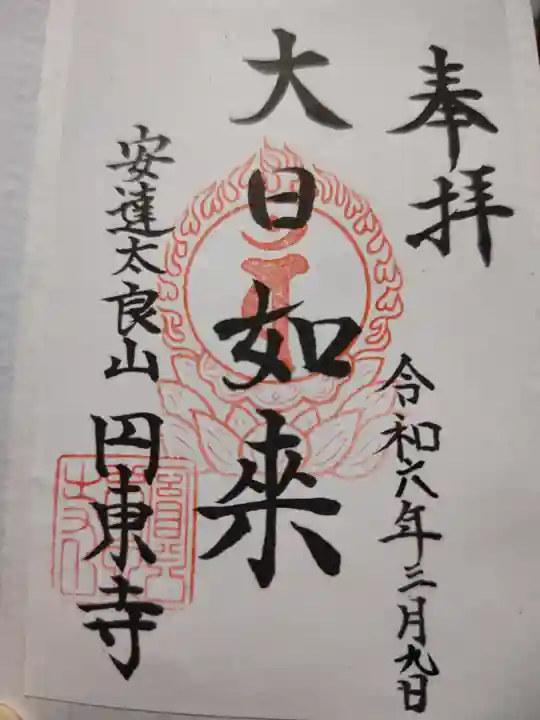 奉拝
令和六年三月九日
大日如来
安達太良山 円東寺